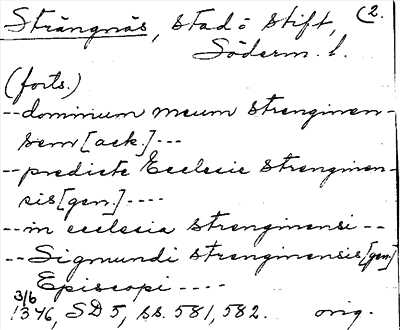 Strängnäs, stad o stift, (2.
Söderm. l.
(forts.)
-- dominum meum strenginen-
sem [ack.] ---
-- predicte Ecclesie strenginen-
sis [gen.] ----
-- in ecclesia strenginensi --
-- Sigmundi strenginensis [gen]
Episcopi ----
3/6
1346, SD 5, ss. 581, 582. orig.